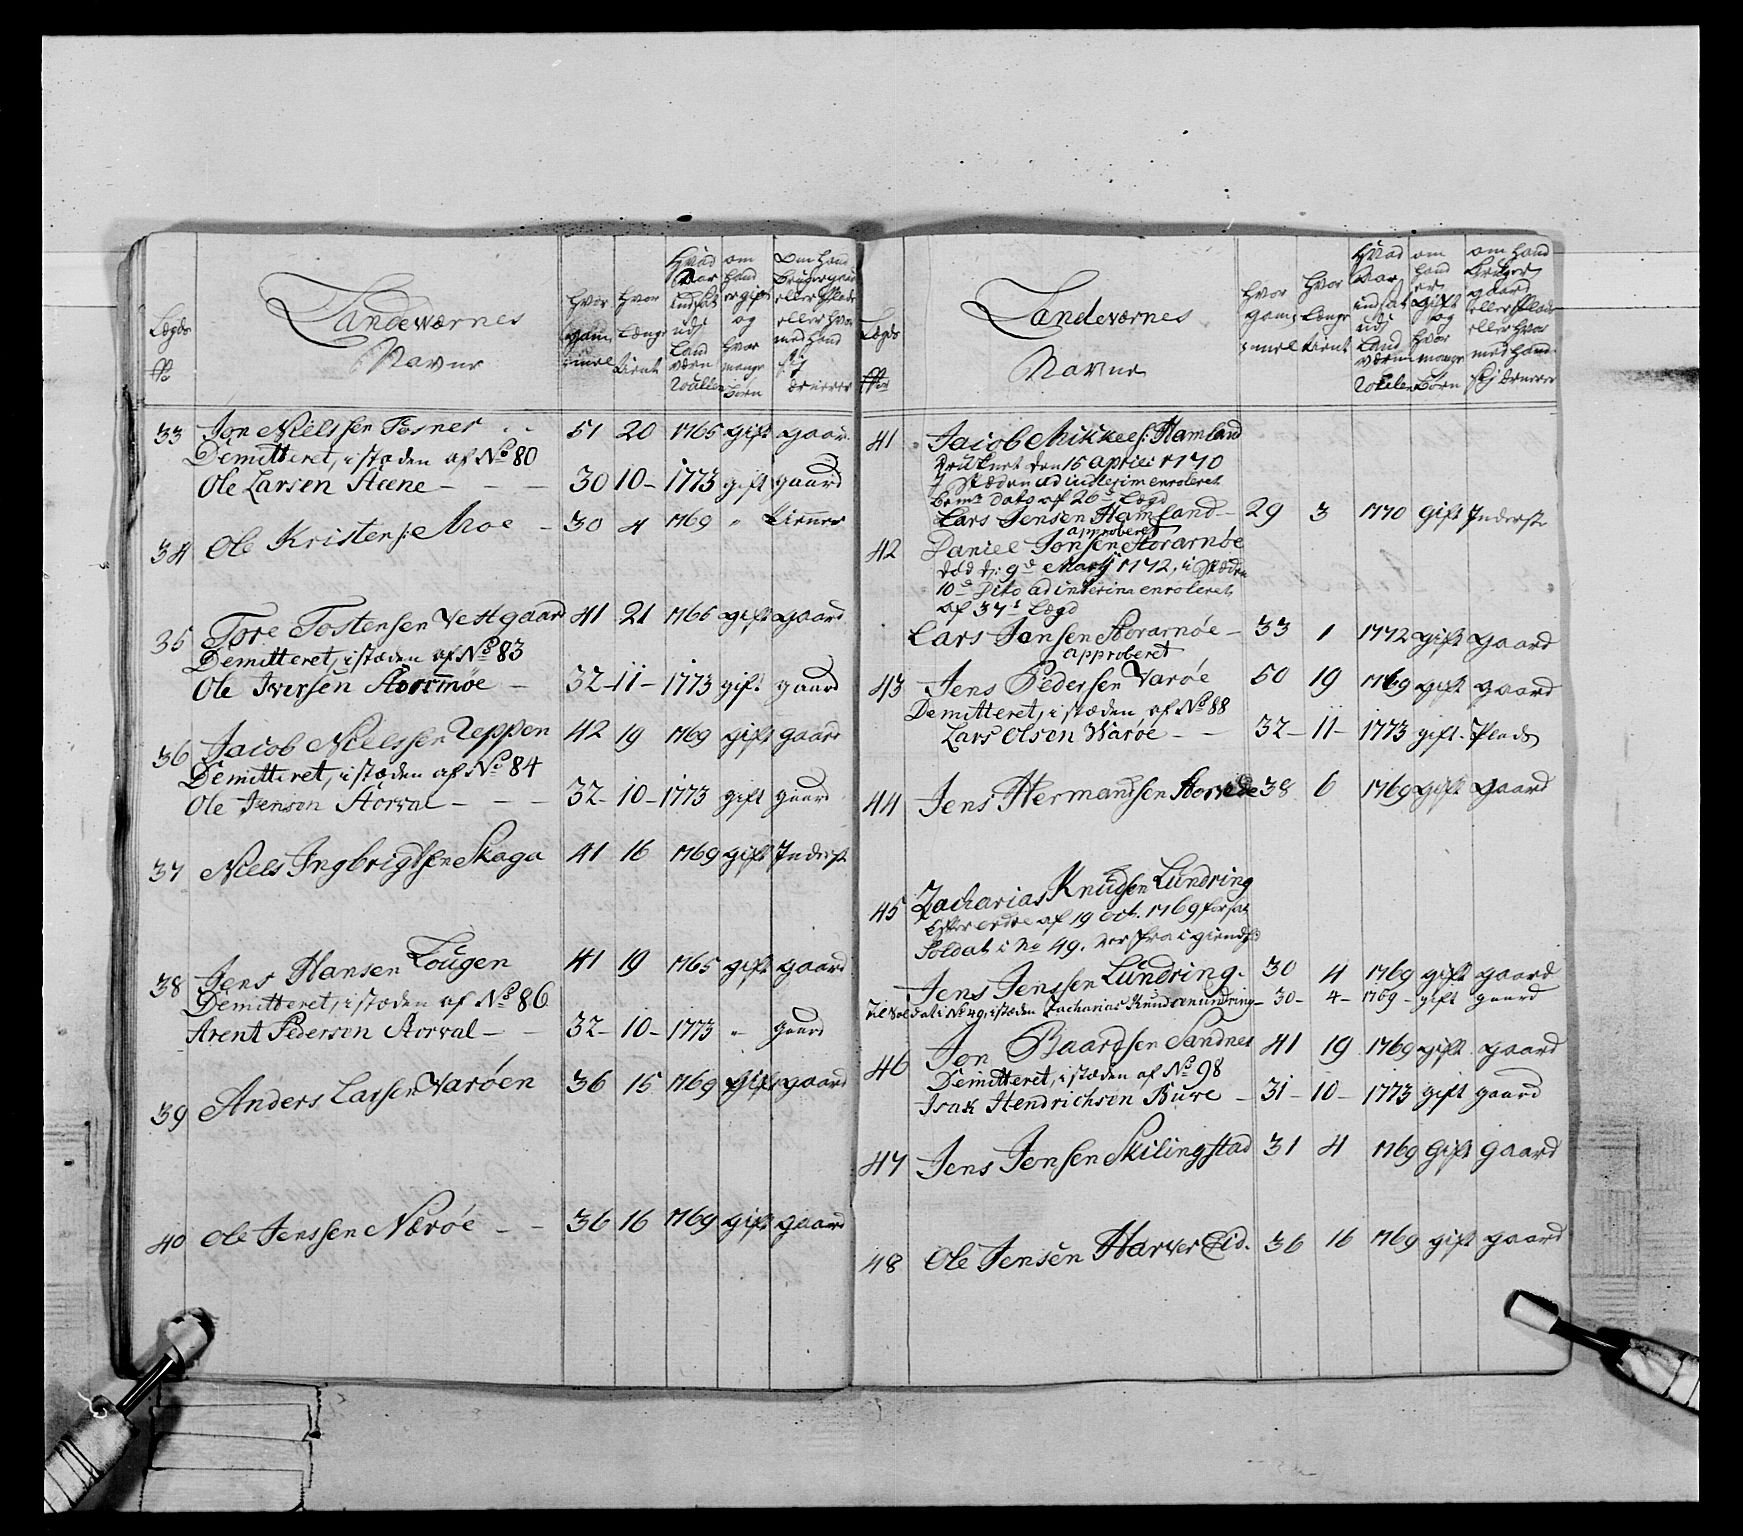 Lægds No
Landewærnes Navne
Hvor gammel
Hvor Længe tient
Hvad Aar indsat udj Land værn Roullen
om hand er gift og hvor mange børn
Om hand bruger gaard eller Plads eller hvor med hand sig ernærer
33 Jon Nielssen Fosnes 51 20 1765 gift gaard
Demitteret, i stæden af No 80
Ole Larsen Steene 30 10 1773 gift gaard
34 Ole Kristens: Moe 30 4 1769 " tienner
35 Tore Tostensen Vestgaard 41 21 1765 gift gaard
Demitteret, i stæden af No 83
Ole Iversen Stormoe 32 11 1773 gift gaard
36 Jacob Nielssen Reppen 42 19 1769 gift gaard
Demitteret, i stæden af No 84
Ole Jensen Storval 32 10 1773 gift gaard
37 Niels Ingbrigtsen Skaga 41 16 1769 gift Inderst
38 Jens Hansen Lougen 41 19 1765 gift gaard
Demitteret, i stæden af No 86
Arent Pedersen Storval 32 10 1773 " gaard
39 Anders Larsen Varöen 36 15 1769 gift gaard
40 Ole Jenssen Nærøe 36 16 1769 gift gaard
Lægds No
Landeværnes Navne
Hvor gammel
Hvor Længe tient
Hvad Aar indsat udj Land værn Roullen
om hand er gift og hvor mange børn
om hand bruger gaard eller Plads eller hvor med hand sig ernærer
41 Jacob Mikkels: Hamland
druknet den 15 april 1770
I stæden ad interim enroleret
bem: dato af 26 Lægd
Lars Jensen Hamland 29 3 1770 gift Inderst
approberet
42 Daniel Jonsen Storarnøe
död d: 9d Martj 1772, i Stæden
10d Dito ad interim enroleret
af 37t Lægd
Lars Jansen Storarnøe 33 1 1772 gift gaard
approberet
43 Jens Pedersen Varøe 50 19 1769 gift gaard
Demitteret, i stæden af No 88
Lars Olsen Warøe 32 11 1773 gift Plads
44 Jens Hermandsen 38 6 1769 gift gaard
45 Zacharias Knudsen Lundring
Efter ordre af 19 oct. 1769 forsat
Soldat i No 49. derfra igiend
Jens Jenssen Lundring. 30 4 1769 gift gaard
til Soldat i No 49, i stæden Zacharias Knudsen Lundring 30 4 1769 gift gaard
46 Jon Baardsen Sandnes 41 19 1769 gift gaard
Demitteret, i stæden af No 98
Isak Hendrichsen Buve 31 10 1773 gift gaard
47 Jens Jensen Skilingstad 31 4 1769 gift gaard
48 Ole Jensen Harver Eid. 36 16 1769 gift gaard